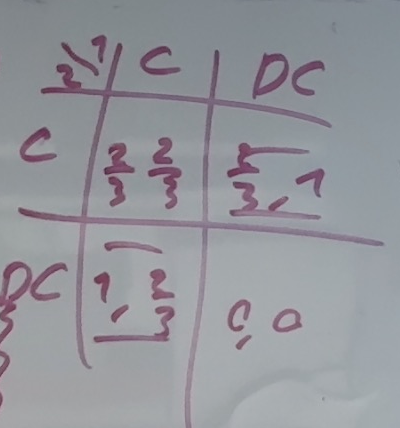 2\1 C DC
C 2/3 2/3 2/3, 1
DC 1, 2/3 0, 0